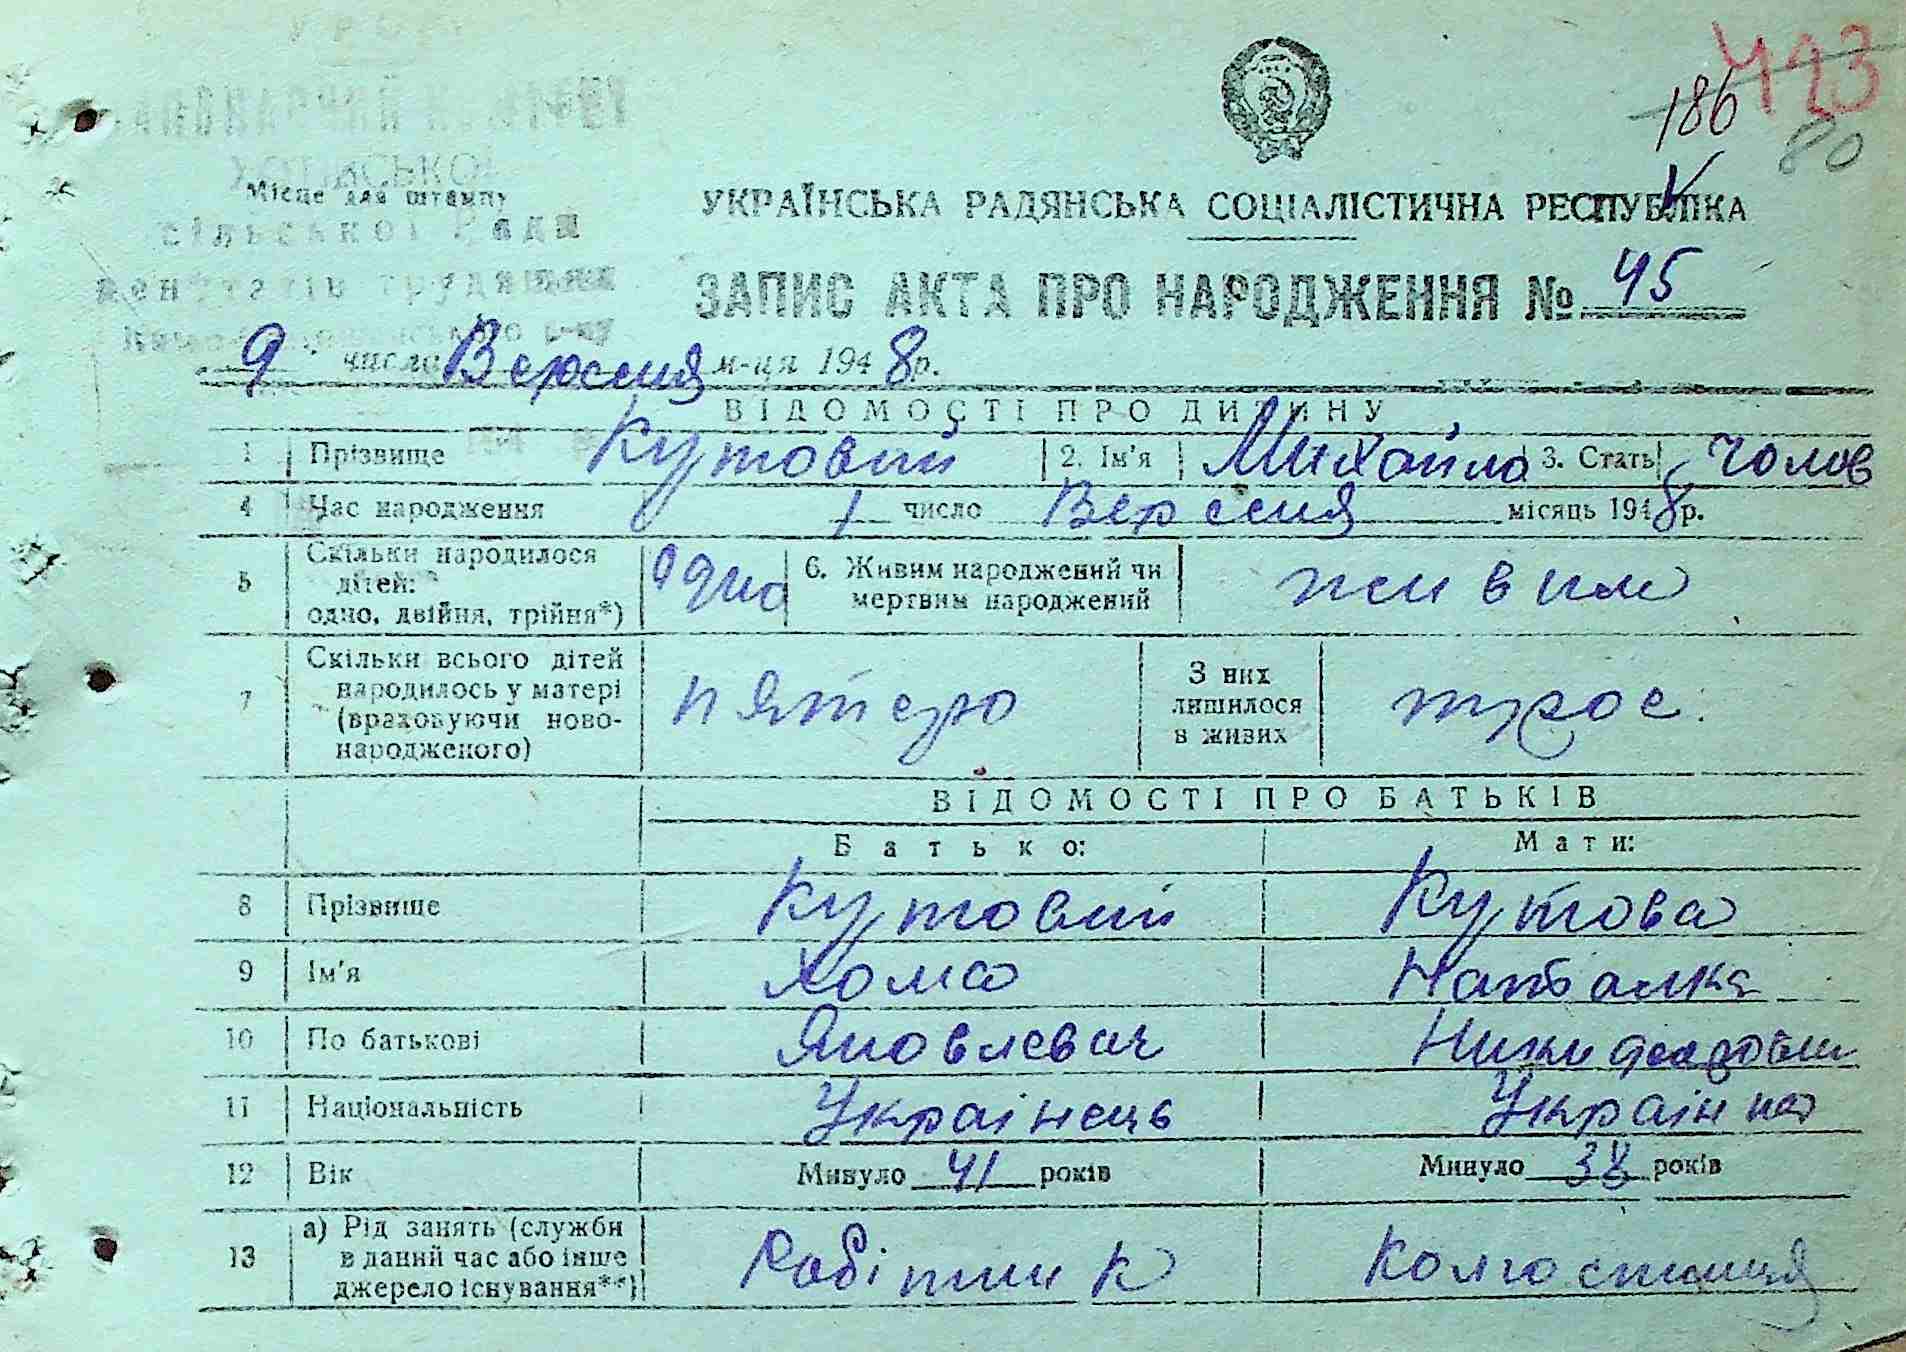 423
186
80
Місце для штампу
сільської Ради
УКРАЇНСЬКА РАДЯНСЬКА СОЦІАЛІСТИЧНА РЕСПУБЛІКА
ЗАПИС АКТА ПРО НАРОДЖЕННЯ № 45
9 числа Вересня м-ця 1948 р.
ВІДОМОСТІ ПРО ДИТИНУ
1 Прізвище Кутовий 2. Ім'я Михайло 3. Стать Чолов
4 Час народження 1 число Вересня місяць 1948 р.
5 Скільки народилося дітей: одно, двійня, трійня*) одно 6. Живим народжений чи мертвим народжений живим
7 Скільки всього дітей народилось у матері (враховуючи новонародженого) пятеро З них лишилося в живих троє
ВІДОМОСТІ ПРО БАТЬКІВ
Батько: Мати:
8 Прізвище Кутовий Кутова
9 Ім'я Хома Наталка
10 По батькові Яковлевич
11 Національність Українець Українка
12 Вік Минуло 41 років Минуло 38 років
13 а) Рід занять (служби в даний час або інше джерело існування**) Робітник Колгоспниця